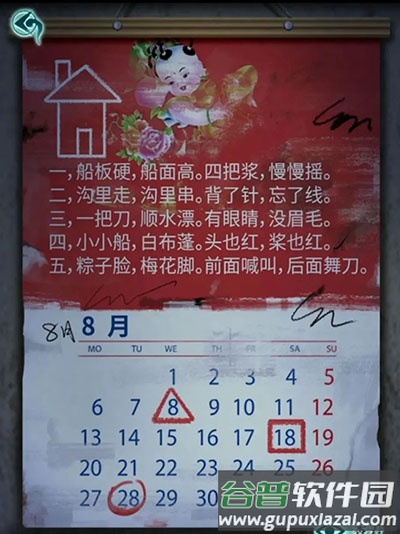 一，船板硬，船面高。四把浆，慢慢摇。
二，沟里走，沟里串。背了针，忘了线。
三，一把刀，顺水漂。有眼睛，没眉毛。
四，小小船，白布蓬。头也红，桨也红。
五，粽子脸，梅花脚。前面喊叫，后面舞刀。
8月 8 月
MO TU WE TH FR SA SU
1 2 3 4 5
6 7 8 9 10 11 12
13 14 15 16 17 18 19
20 21 22 23 24 25 26
27 28 29 30
谷普软件园
www.gupuxlazal.com